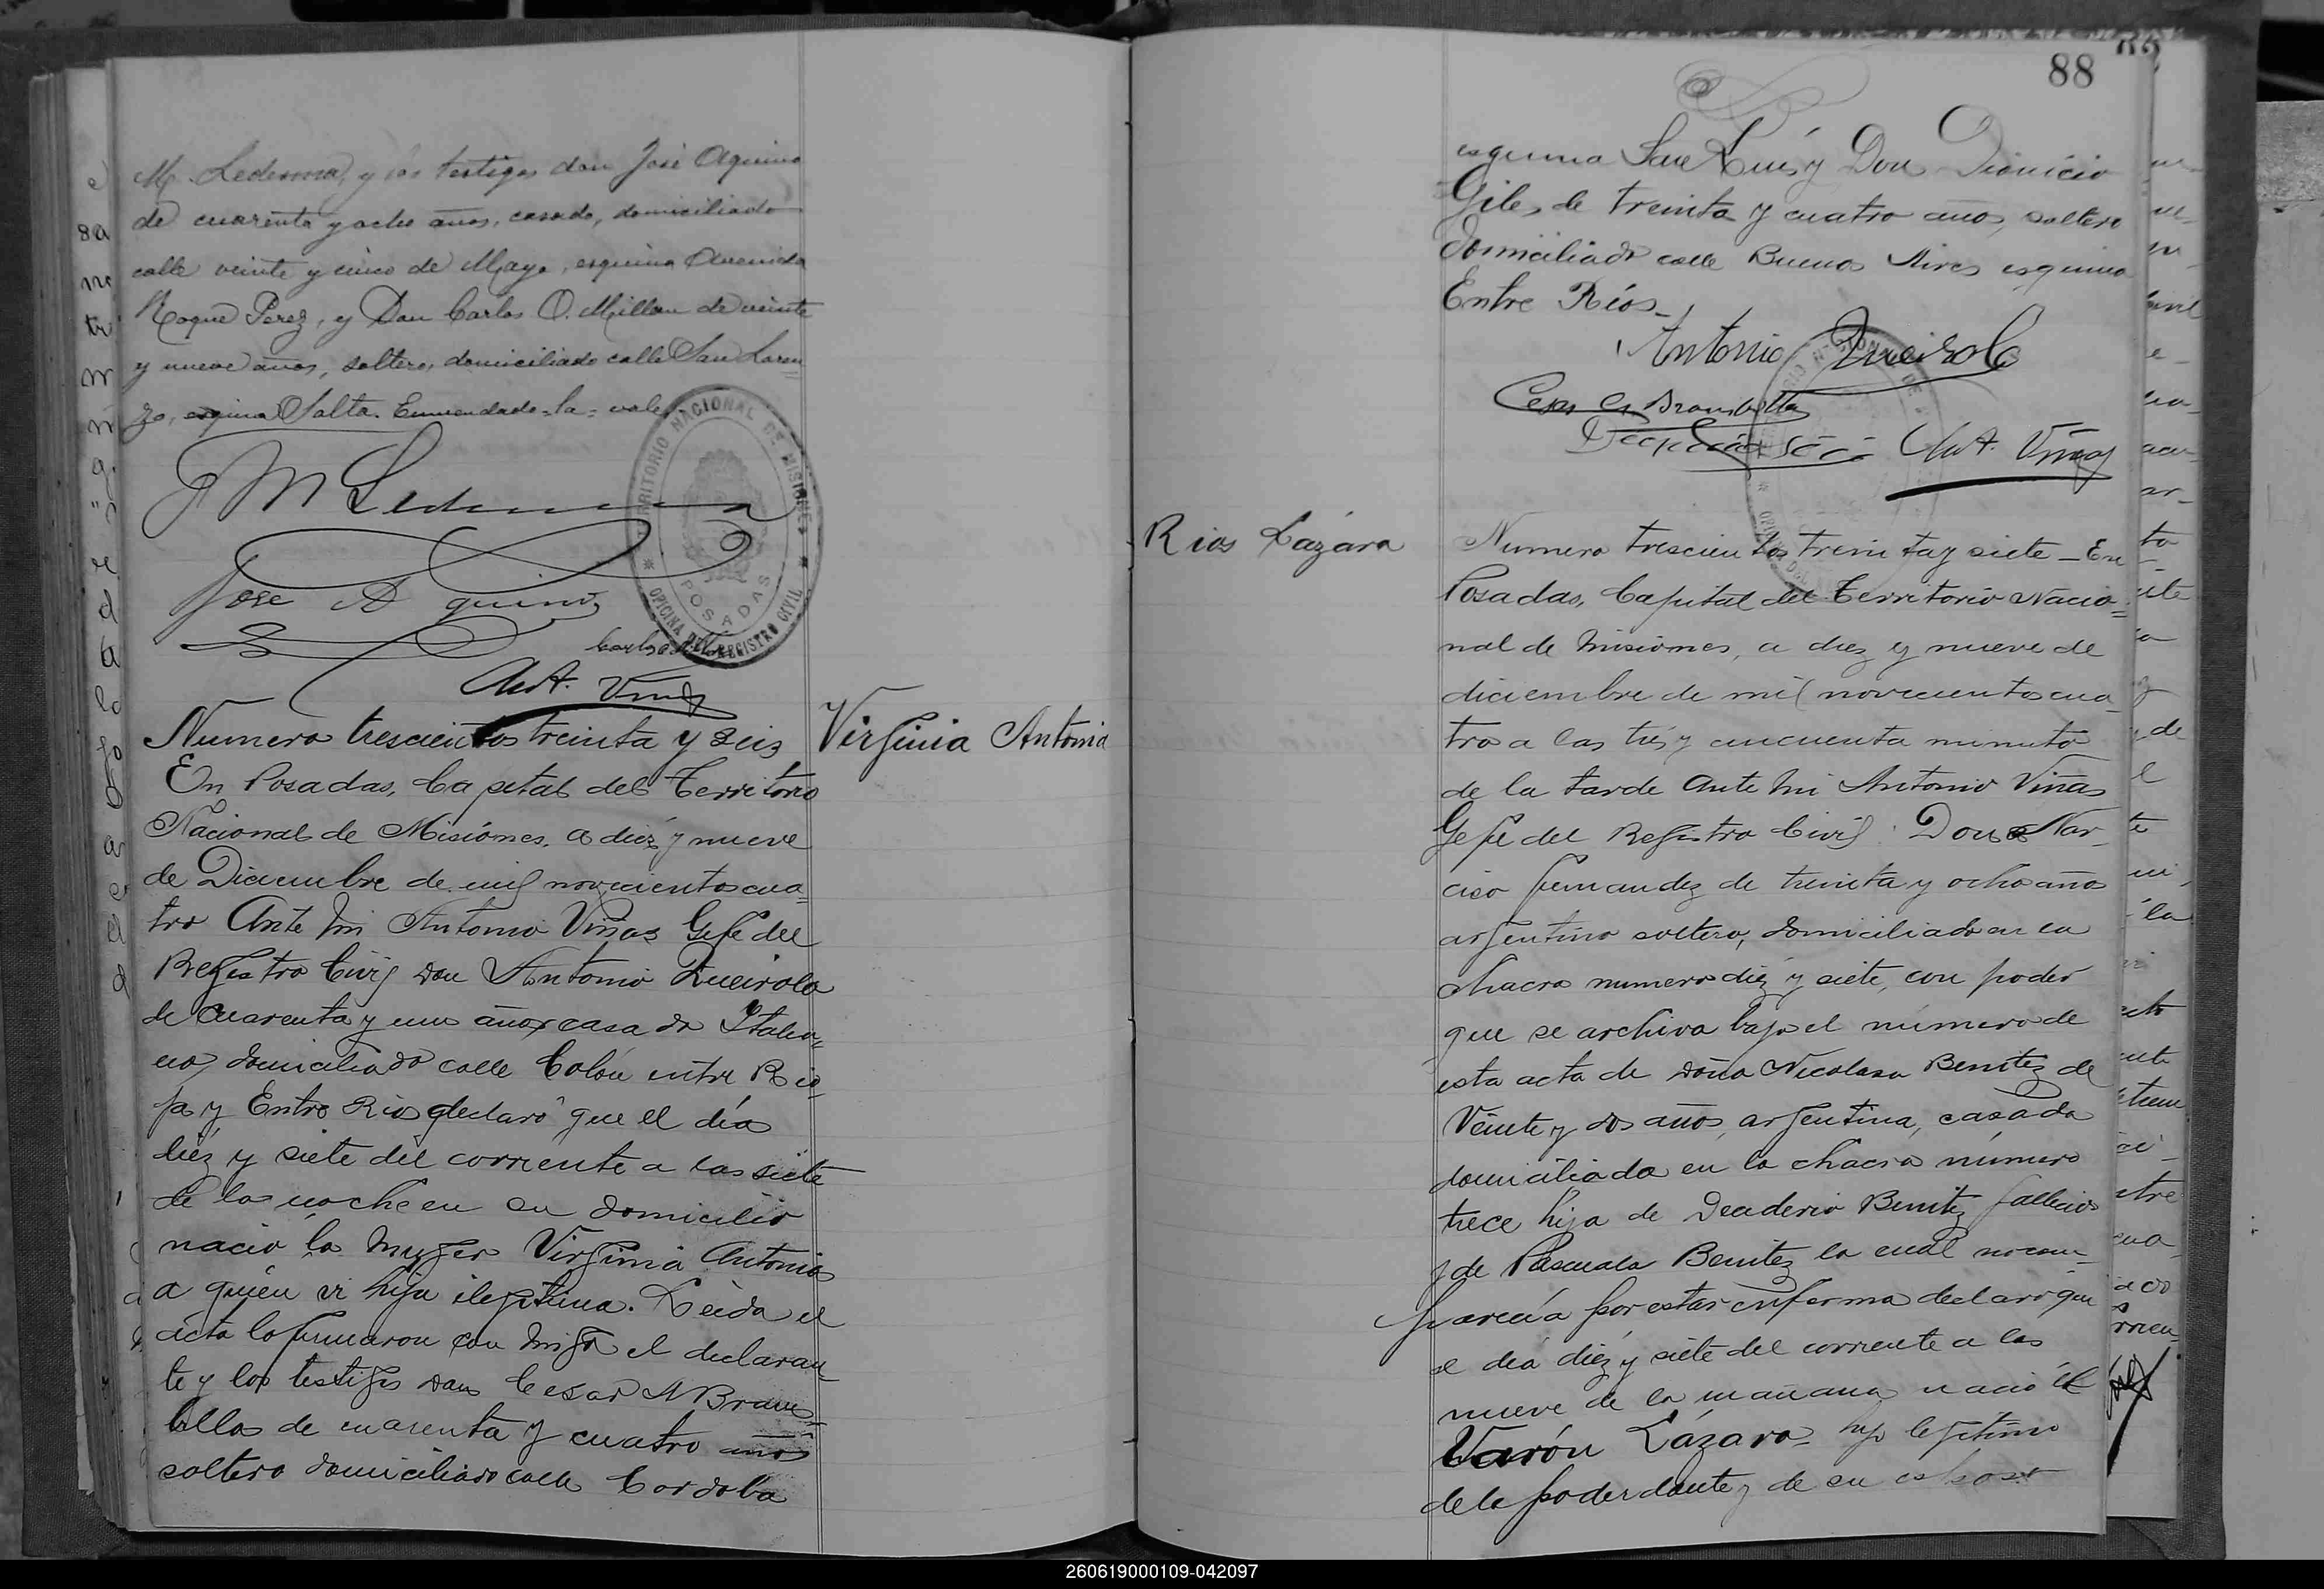 M. Ledesma, y los testigos don José Aquino
de cuarenta y ocho años, casado, domiciliado
calle veinte y cinco de Mayo, esquina Avenida
Roque Perez, y Don Carlos O. Millan de veinte
y nueve años, soltero, domiciliado calle San Loren
zo, esquina Salta. Enmendado=la=vale
M Ledesma
TERRITORIO NACIONAL DE MISIONES
POSADAS
OFICINA DEL REGISTRO CIVIL
Jose A quino
Carlos
Ant. Viñas
Numero trescientos treinta y seis
Virginia Antonia
En Posadas, Capital del Territorio
Nacional de Misiónes, a diéz y nueve
de Diciembre de mil novecientos cua=
tro Ante mi Antonio Viñas Gefe del
Registro Civil don Antonio Queirolo
de cuarenta y un años casado Italia=
no, domiciliado calle Colón entre Rio=
ja y Entre Rios declaró que el día
diéz y siete del corriente a las siete
de la noche en su domicilio
nació la muger Virginia Antonia
a quien vi hija ilegitima. Leida el
acta la firmaron con migo el declaran
te y los testigos don Cesar A Bram=
billa de cuarenta y cuatro años
soltero domiciliado calle Cordoba
88
esquina San Luis y Don Dionicio
Giles de treinta y cuatro años, soltero
domiciliado calle Buenos Aires esquina
Entre Ríos_
Antonio Queirolo
Cesar A Brambilla
Ant. Viñas
Rios Lázaro
Numero trescientos treinta y siete_ En
Posadas, Capital del Territorio Nacio=
nal de Misiones, a diez y nueve de
diciembre de mil novecientos cua_
tro a las tres y cincuenta minutos
de la tarde ante mi Antonio Viñas
Gefe del Registro Civil: Don Nar_
ciso Fernandez de treinta y ocho años
argentino soltero, domiciliado en la
chacra numero diez y siete, con poder
que se archiva bajo el número de
esta acta de doña Nicolasa Benitez de
Veinte y dos años, argentina, casada
domiciliada en la chacra número
trece hija de Deciderio Benitez fallecido
y de Pascuala Benitez la cual no com_
parecía por estar enferma declaró que
el día diéz y siete del corriente a las
nueve de la mañana nació el
Varón Lázaro_ hijo legítimo
de la poderdante y de su esposo
260619000109-042097